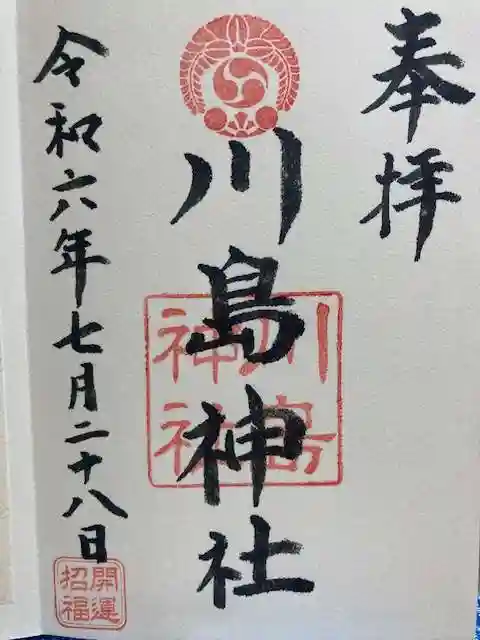 奉拝
川島神社
川島
神社
令和六年七月二十八日
開運
招福